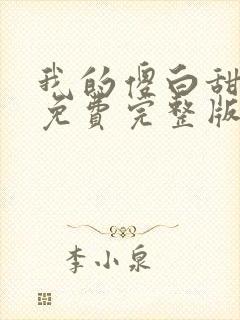 我的傻白甜
免费完整版
李小泉